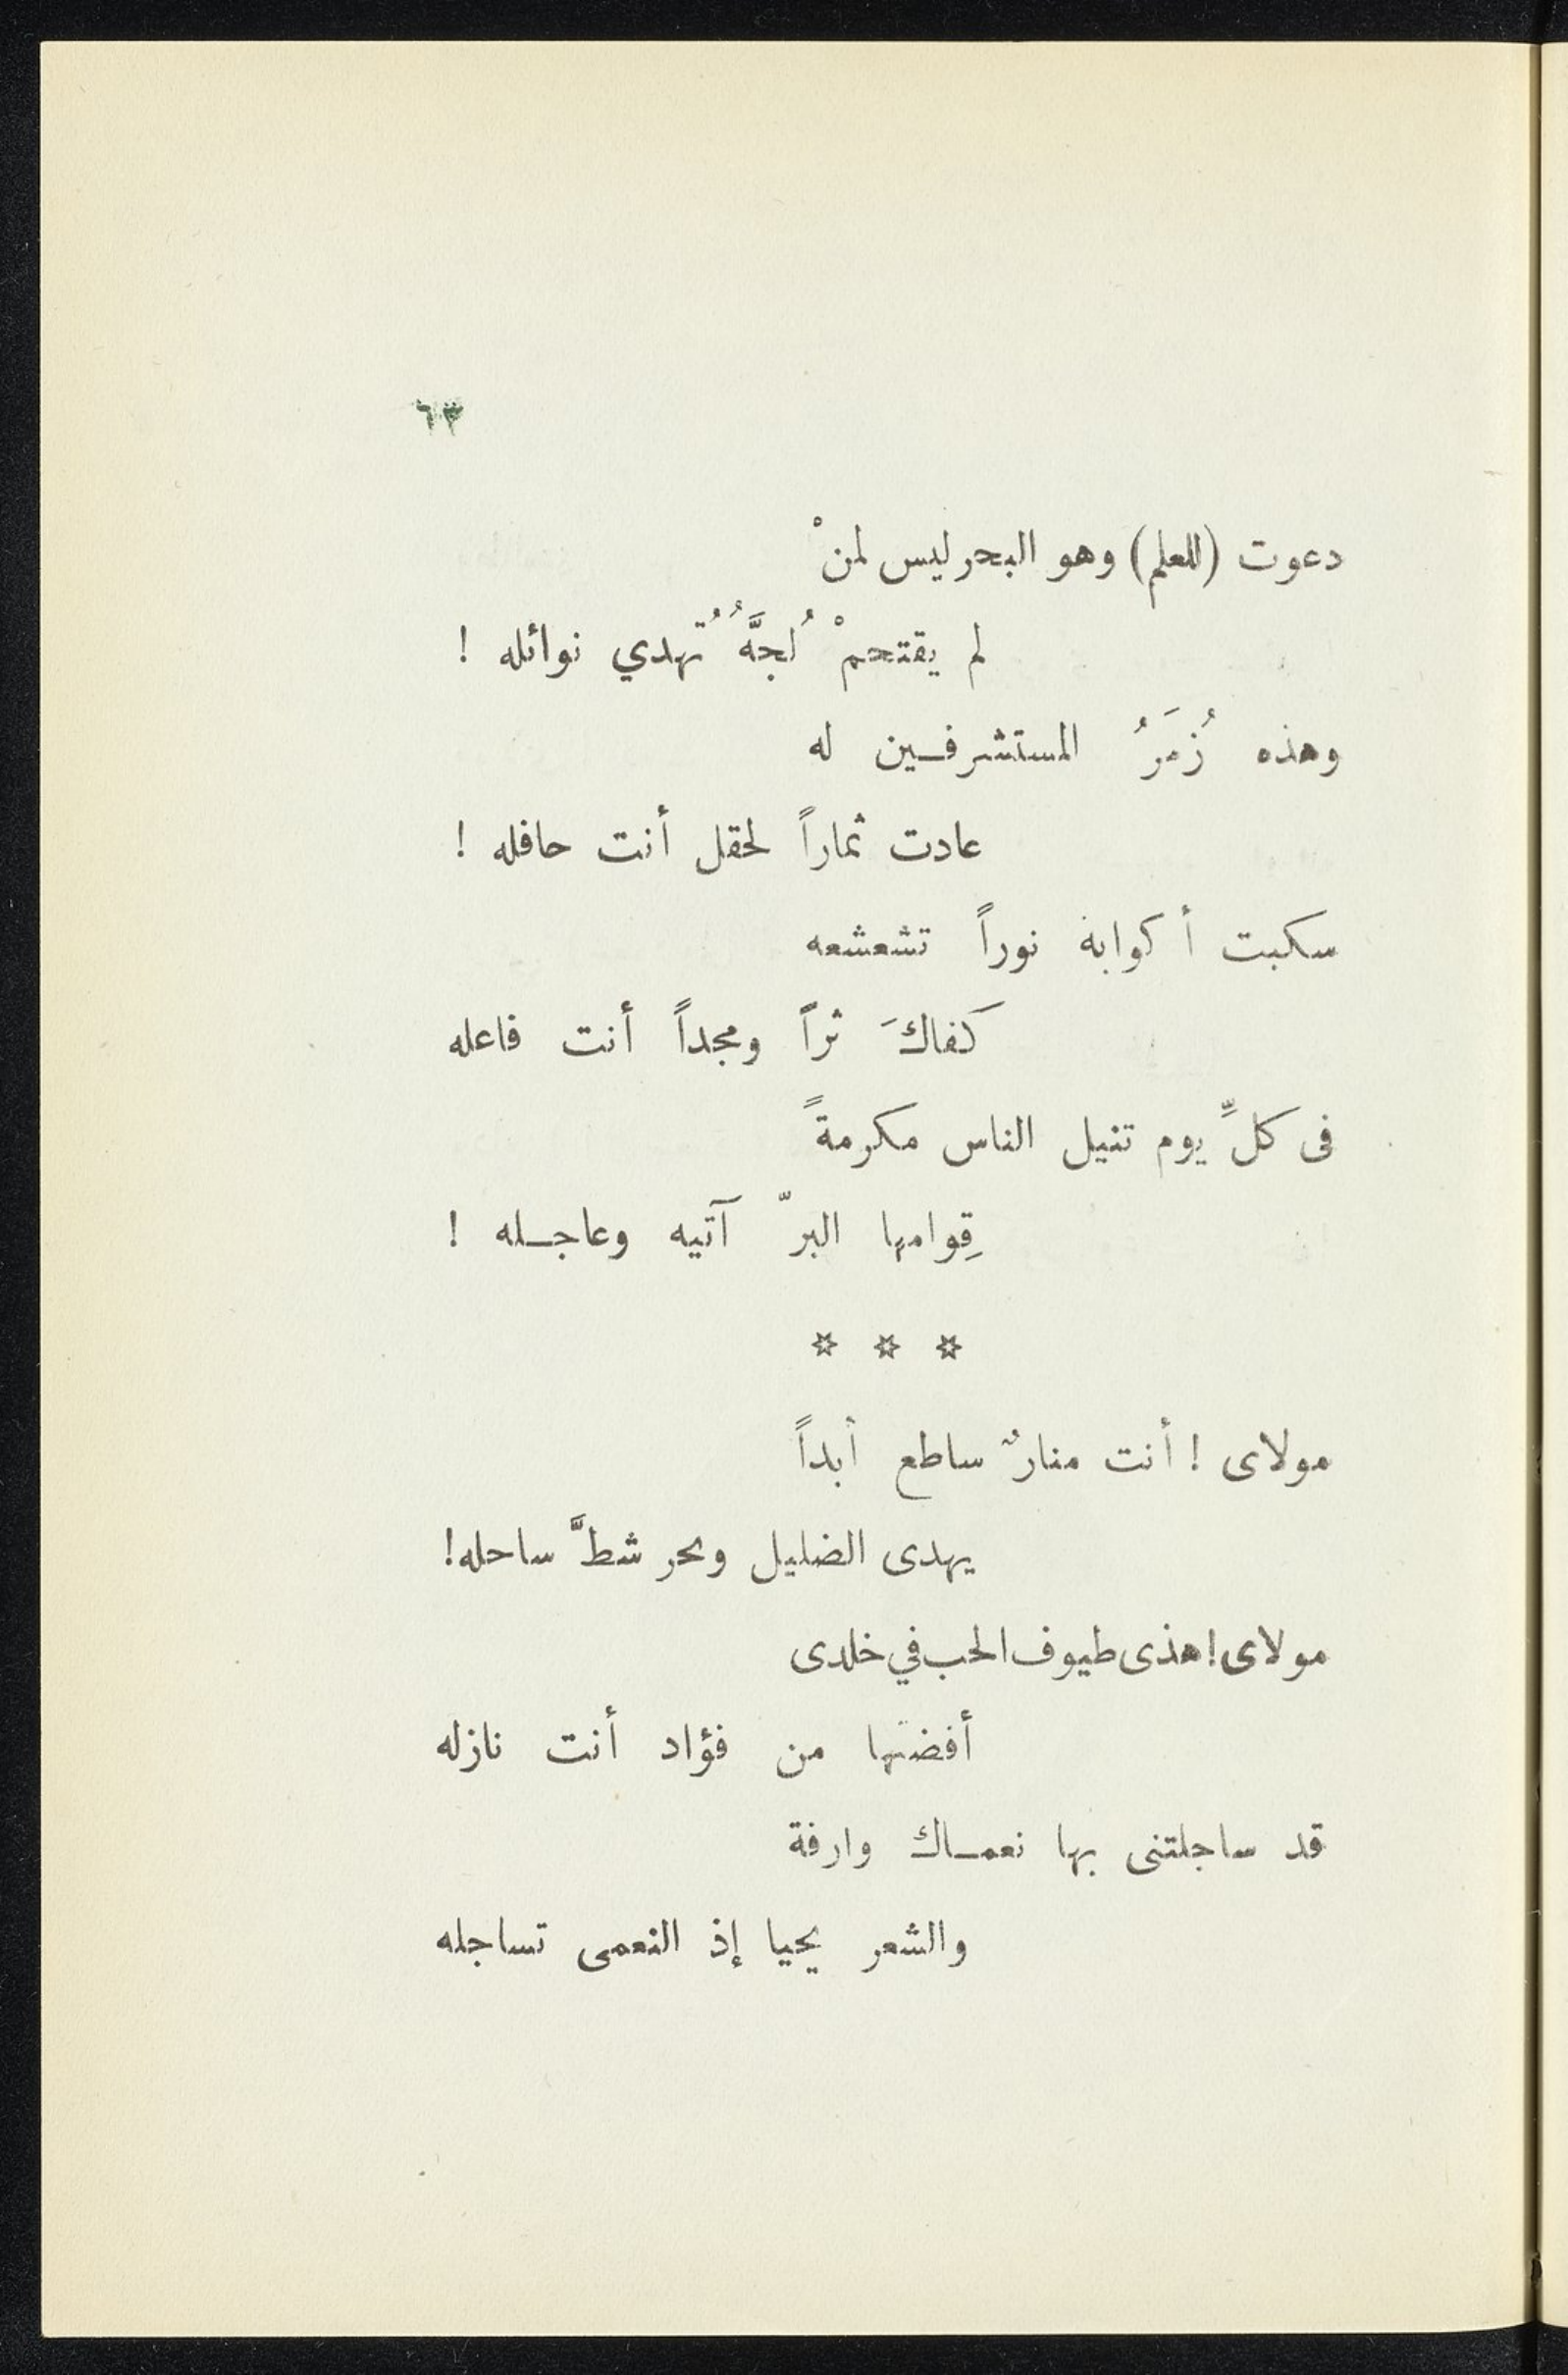 ٦٣
دعوت (للعلم) وهو البحر ليس لمنْ
لم يقتحمْ لُجَّهُ تُهدي نوائله !
وهذه زُمَرُ المستشرفـين له
عادت ثماراً لحقل أنت حافله !
سكبت أكوابه نوراً تشعشعه
كفاكَ ثراً ومجداً أنت فاعله
فى كلِّ يوم تنيل الناس مكرمةً
قِوامها البرّ آتيه وعاجـله !
* * *
مولاى ! أنت منارٌ ساطع أبداً
يهدى الضليل وبحر شطَّ ساحله!
مولاى! هذى طيوف الحب في خلدى
أفضتها من فؤاد أنت نازله
قد ساجلتنى بها نعمـاك وارفة
والشعر يحيا إذ النعمى تساجله